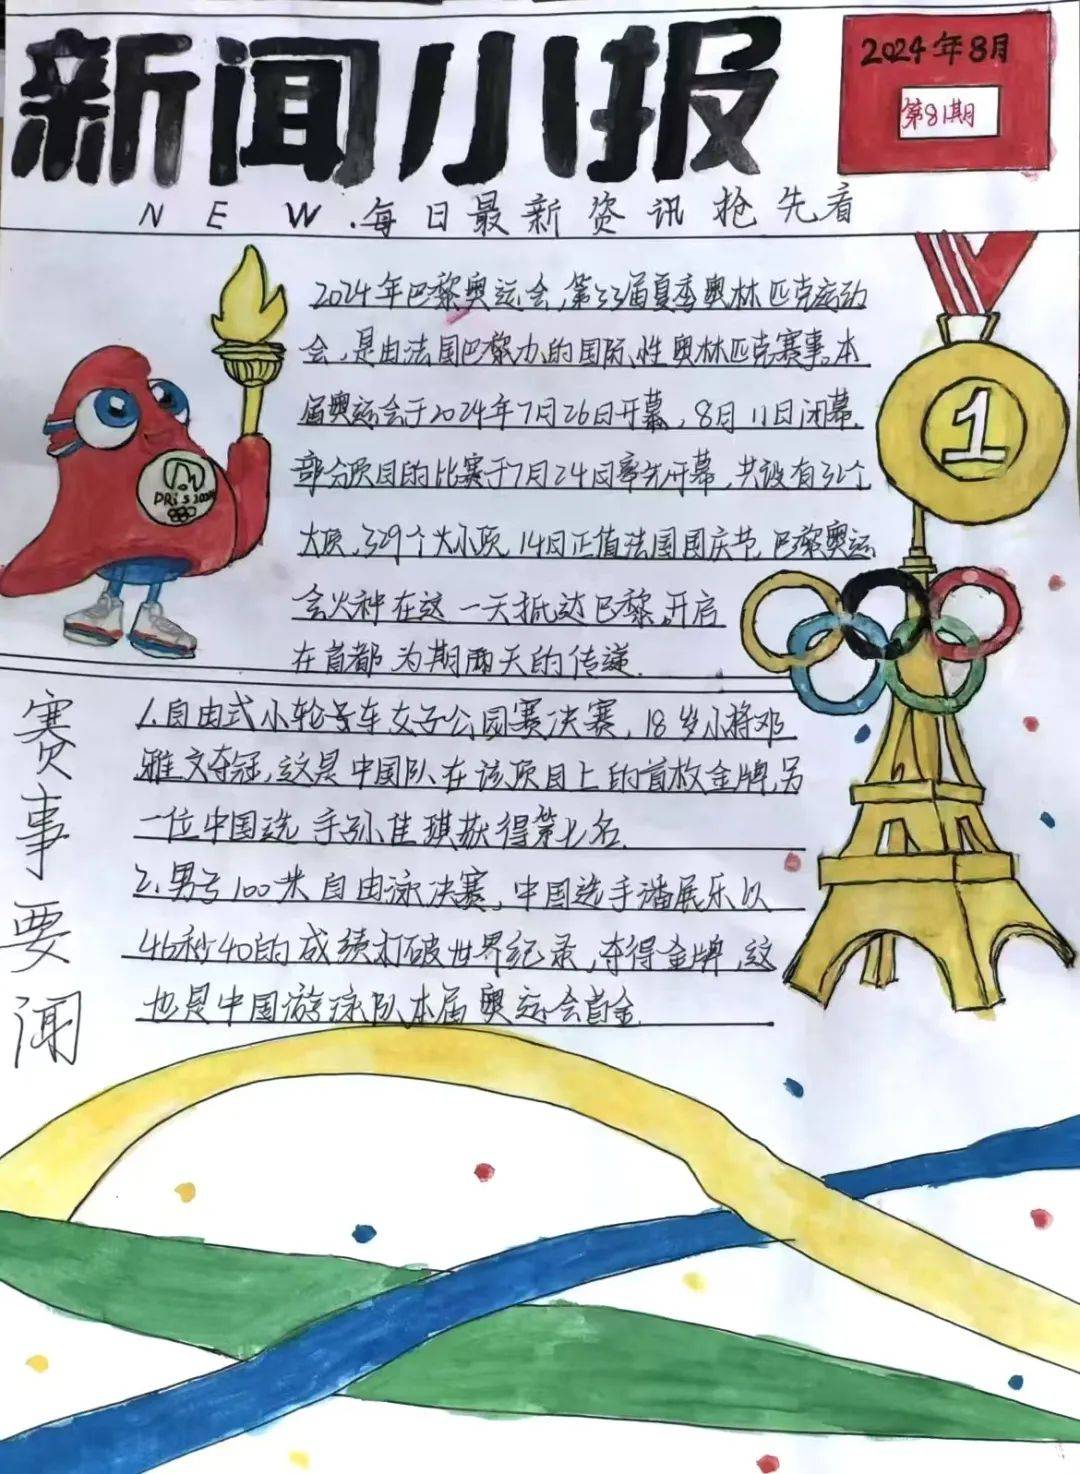 新闻小报
2024年8月
第81期
NEW.每日最新资讯抢先看
2024年巴黎奥运会,第33届夏季奥林匹克运动
会,是由法国巴黎办的国际性奥林匹克赛事,本
届奥运会于2024年7月26日开幕,8月11日闭幕.
部分项目的比赛于7月24日率先开幕,共设有32个
大项,329个大小项,14日正值法国国庆节,巴黎奥运
会火种在这一天抵达巴黎,开启
在首都为期两天的传递.
PRiS 2024
1
赛事要闻
1.自由式小轮号车女子公园赛决赛,18岁小将邓
雅文夺冠,这是中国队在该项目上的首枚金牌,另
一位中国选手孙佳琪获得第七名.
2.男号100米自由泳决赛,中国选手潘展乐以
46秒40的成绩打破世界纪录,夺得金牌,这
也是中国游泳队本届奥运会首金.